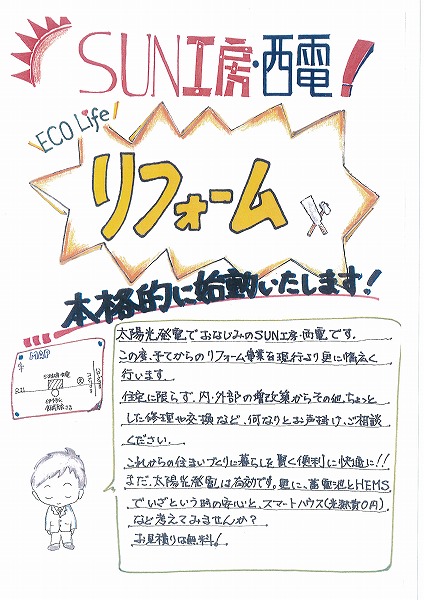 SUN工房・西電!
ECO Life
リフォーム
本格的に始動いたします!
MAP
R21
太陽光発電でおなじみのSUN工房・西電です。
この度、予てからのリフォーム事業を現行より更に幅広く
行います。
住宅に限らず、内・外部の増改築からその他、ちょっと
した修理や交換など、何なりとお声掛け、ご相談
ください。
これからの住まいづくりに暮らしを賢く便利に快適に!!
まだ、太陽光発電は有効です。更に、蓄電池とHEMS
でいざという時の安心と、スマートハウス(光熱費0円)
など考えてみませんか?
お見積りは無料!